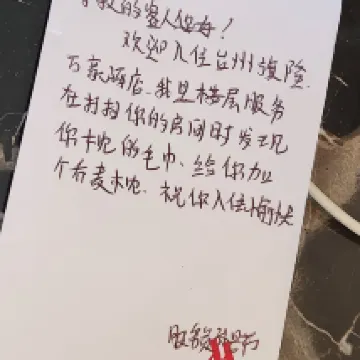 尊敬的客人您好！
欢迎入住台州旅险
万豪酒店、我是楼层服务
在打扫你的房间时发现
你枕的毛巾、给你加
个荞麦枕、祝你入住愉快
服务